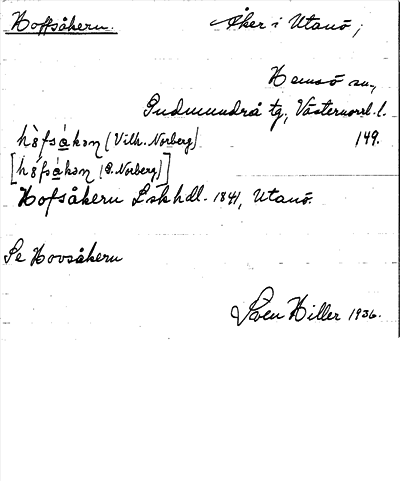 Hoffsåkern. Åker i Utanö;
Hemsö sn,
Gudmundrå tg, Västernorrl. l.
hò̀fsákən (Vilh. Norberg) 149.
[hófsákən (E. Norberg)]
Hofsåkern L sk hdl. 1841, Utanö.
Se Hovsåkern
Sven Hiller 1936.